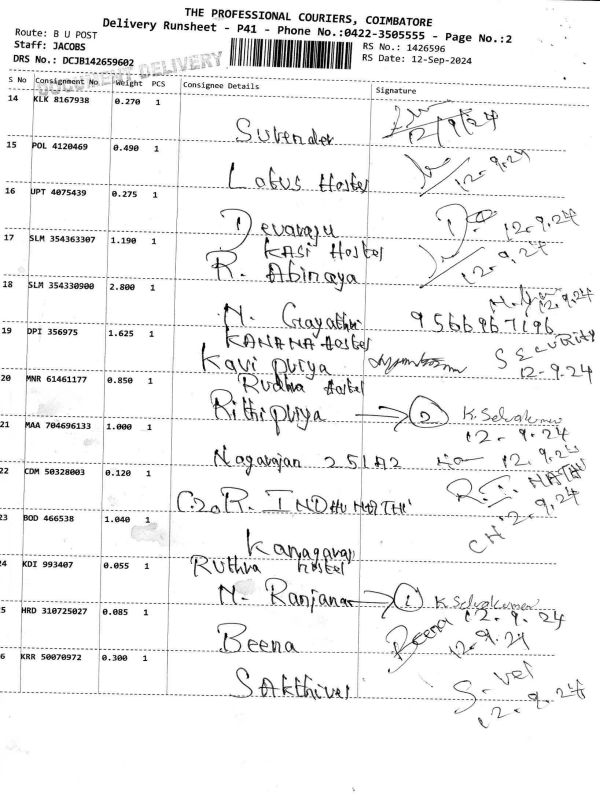 THE PROFESSIONAL COURIERS, COIMBATORE
Delivery Runsheet - P41 - Phone No.:0422-3505555 - Page No.:2
Route: B U POST
Staff: JACOBS
RS No.: 1426596
DRS No.: DCJB142659602
RS Date: 12-Sep-2024
DOCUMENT DELIVERY
S No Consignment No. Weight PCS Consignee Details Signature
14 KLK 8167938 0.270 1
Surender 12/9/24
15 POL 4120469 0.490 1
Lotus Hostel 12.9.24
16 UPT 4075439 0.275 1
Devaraju 12.9.24
17 SLM 354363307 1.190 1
KASi Hostel
R. Abinaya 12.9.24
18 SLM 354330900 2.800 1
N. Gayathri 9566967196 12.9.24
19 DPI 356975 1.625 1
KANANA Hostel
Kavi puriya SECURITY
12-9.24
20 MNR 61461177 0.850 1
Rudhra Hostel
Rithi puriya 2 K. Selvakumar
12.9.24
21 MAA 704696133 1.000 1
Nagarajan 25182 12.9.24
22 CDM 50328003 0.120 1
R. INDHUMATHI
12.9.24
23 BOD 466538 1.040 1
Kanagaraj
24 KDI 993407 0.055 1
Ruthra hostel
N. Ranjana 1 K. Selvakumar
12.9.24
5 HRD 310725027 0.085 1
Beena Beena 12.9.24
6 KRR 50070972 0.300 1
Sakthivel S. vel
12.9.24